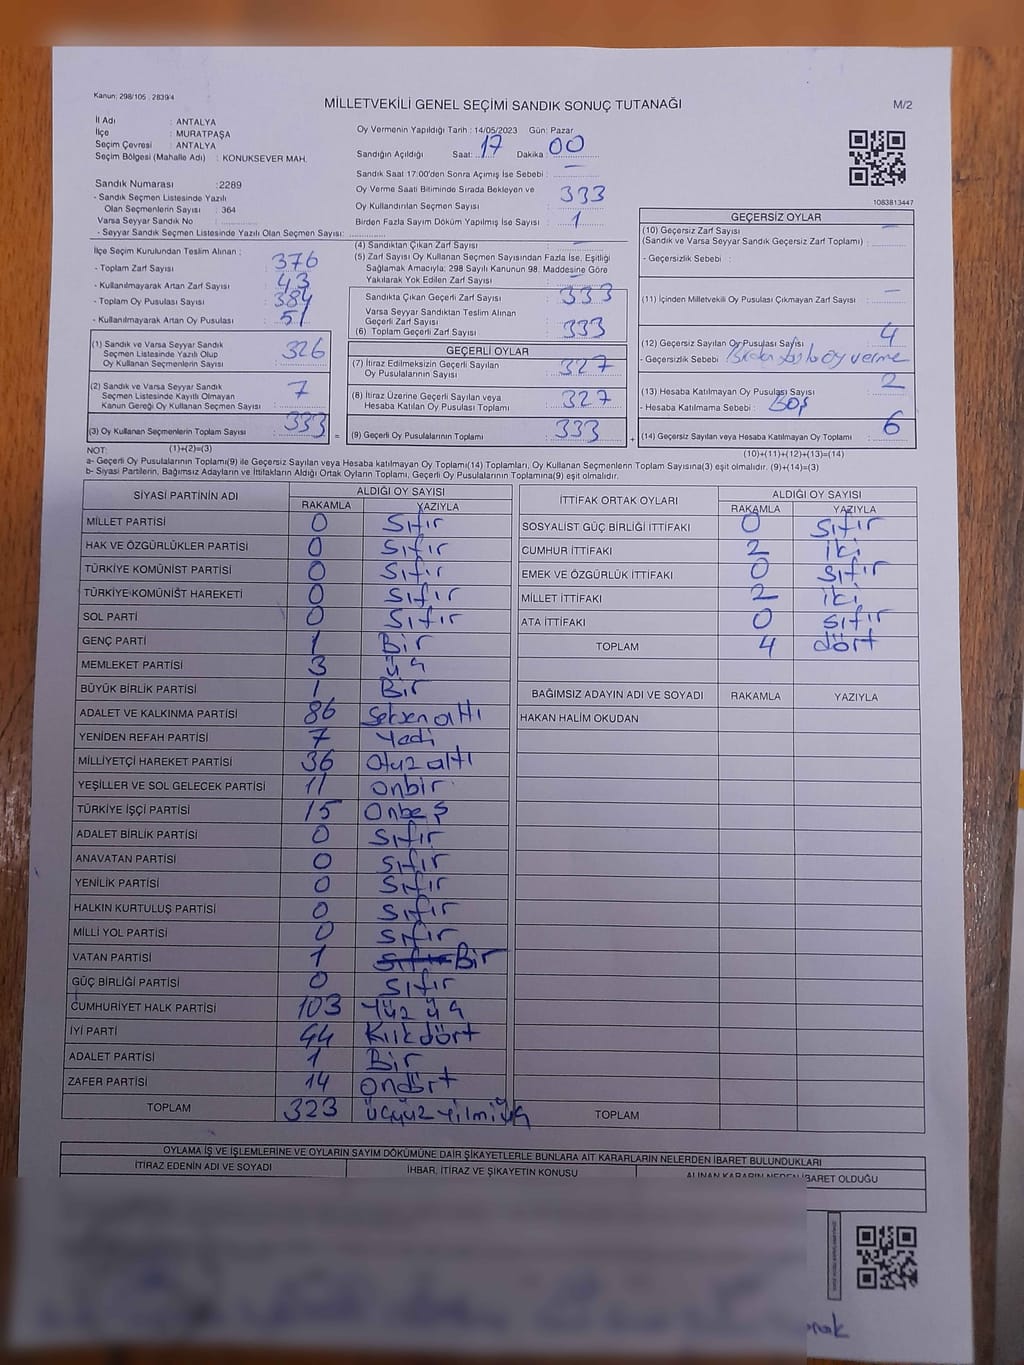 Kanun: 298/105 , 2839/4
MİLLETVEKİLİ GENEL SEÇİMİ SANDIK SONUÇ TUTANAĞI
M/2
İl Adı : ANTALYA
İlçe : MURATPAŞA
Seçim Çevresi : ANTALYA
Seçim Bölgesi (Mahalle Adı) : KONUKSEVER MAH.
Sandık Numarası :2289
- Sandık Seçmen Listesinde Yazılı
Olan Seçmenlerin Sayısı : 364
Varsa Seyyar Sandık No :
- Seyyar Sandık Seçmen Listesinde Yazılı Olan Seçmen Sayısı:
Oy Vermenin Yapıldığı Tarih : 14/05/2023 Gün: Pazar
Sandığın Açıldığı Saat: 17 Dakika : 00
Sandık Saat 17:00'den Sonra Açımış İse Sebebi : —
Oy Verme Saati Bitiminde Sırada Bekleyen ve
Oy Kullandırılan Seçmen Sayısı : 333
Birden Fazla Sayım Döküm Yapılmış İse Sayısı : 1
1083813447
İlçe Seçim Kurulundan Teslim Alınan :
- Toplam Zarf Sayısı : 376
- Kullanılmayarak Artan Zarf Sayısı : 43
- Toplam Oy Pusulası Sayısı : 384
- Kullanılmayarak Artan Oy Pusulası : 51
(1) Sandık ve Varsa Seyyar Sandık
Seçmen Listesinde Yazılı Olup
Oy Kullanan Seçmenlerin Sayısı : 326
(2) Sandık ve Varsa Seyyar Sandık
Seçmen Listesinde Kayıtlı Olmayan
Kanun Gereği Oy Kullanan Seçmen Sayısı : 7
(3) Oy Kullanan Seçmenlerin Toplam Sayısı : 333
(4) Sandıktan Çıkan Zarf Sayısı : —
(5) Zarf Sayısı Oy Kullanan Seçmen Sayısından Fazla İse, Eşitliği
Sağlamak Amacıyla; 298 Sayılı Kanunun 98. Maddesine Göre
Yakılarak Yok Edilen Zarf Sayısı : —
Sandıkta Çıkan Geçerli Zarf Sayısı : 333
Varsa Seyyar Sandıktan Teslim Alınan
Geçerli Zarf Sayısı :
(6) Toplam Geçerli Zarf Sayısı : 333
GEÇERLİ OYLAR
(7) İtiraz Edilmeksizin Geçerli Sayılan
Oy Pusulalarının Sayısı : 327
(8) İtiraz Üzerine Geçerli Sayılan veya
Hesaba Katılan Oy Pusulası Toplamı : 327
= (9) Geçerli Oy Pusulalarının Toplamı : 333 +
GEÇERSİZ OYLAR
(10) Geçersiz Zarf Sayısı —
(Sandık ve Varsa Seyyar Sandık Geçersiz Zarf Toplamı) :
- Geçersizlik Sebebi :
(11) İçinden Milletvekili Oy Pusulası Çıkmayan Zarf Sayısı : —
(12) Geçersiz Sayılan Oy Pusulası Sayısı : 4
- Geçersizlik Sebebi : Birden fazla oy verme
(13) Hesaba Katılmayan Oy Pusulası Sayısı : 2
- Hesaba Katılmama Sebebi : Boş
(14) Geçersiz Sayılan veya Hesaba Katılmayan Oy Toplamı : 6
NOT: (1)+(2)=(3)
(10)+(11)+(12)+(13)=(14)
a- Geçerli Oy Pusulalarının Toplamı(9) ile Geçersiz Sayılan veya Hesaba katılmayan Oy Toplamı(14) Toplamları, Oy Kullanan Seçmenlerin Toplam Sayısına(3) eşit olmalıdır. (9)+(14)=(3)
b- Siyasi Partilerin, Bağımsız Adayların ve İttifakların Aldığı Ortak Oyların Toplamı, Geçerli Oy Pusulalarının Toplamına(9) eşit olmalıdır.
SİYASİ PARTİNİN ADI ALDIĞI OY SAYISI
RAKAMLA YAZIYLA
MİLLET PARTİSİ 0 Sıfır
HAK VE ÖZGÜRLÜKLER PARTİSİ 0 Sıfır
TÜRKİYE KOMÜNİST PARTİSİ 0 Sıfır
TÜRKİYE KOMÜNİST HAREKETİ 0 Sıfır
SOL PARTİ 0 Sıfır
GENÇ PARTİ 1 Bir
MEMLEKET PARTİSİ 3 üç
BÜYÜK BİRLİK PARTİSİ 1 Bir
ADALET VE KALKINMA PARTİSİ 86 Seksen altı
YENİDEN REFAH PARTİSİ 7 Yedi
MİLLİYETÇİ HAREKET PARTİSİ 36 Otuz altı
YEŞİLLER VE SOL GELECEK PARTİSİ 11 Onbir
TÜRKİYE İŞÇİ PARTİSİ 15 Onbeş
ADALET BİRLİK PARTİSİ 0 Sıfır
ANAVATAN PARTİSİ 0 Sıfır
YENİLİK PARTİSİ 0 Sıfır
HALKIN KURTULUŞ PARTİSİ 0 Sıfır
MİLLİ YOL PARTİSİ 0 Sıfır
VATAN PARTİSİ 1 Sıfır Bir
GÜÇ BİRLİĞİ PARTİSİ 0 Sıfır
CUMHURİYET HALK PARTİSİ 103 Yüz üç
İYİ PARTİ 44 Kırkdört
ADALET PARTİSİ 1 Bir
ZAFER PARTİSİ 14 Ondört
TOPLAM 323 üçyüz yilmiüç
İTTİFAK ORTAK OYLARI ALDIĞI OY SAYISI
RAKAMLA YAZIYLA
SOSYALİST GÜÇ BİRLİĞİ İTTİFAKI 0 Sıfır
CUMHUR İTTİFAKI 2 iki
EMEK VE ÖZGÜRLÜK İTTİFAKI 0 Sıfır
MİLLET İTTİFAKI 2 iki
ATA İTTİFAKI 0 Sıfır
TOPLAM 4 dört
BAĞIMSIZ ADAYIN ADI VE SOYADI RAKAMLA YAZIYLA
HAKAN HALİM OKUDAN
TOPLAM
OYLAMA İŞ VE İŞLEMLERİNE VE OYLARIN SAYIM DÖKÜMÜNE DAİR ŞİKAYETLERLE BUNLARA AİT KARARLARIN NELERDEN İBARET BULUNDUKLARI
İTİRAZ EDENİN ADI VE SOYADI İHBAR, İTİRAZ VE ŞİKAYETİN KONUSU ALINAN KARARIN NEDEN İBARET OLDUĞU